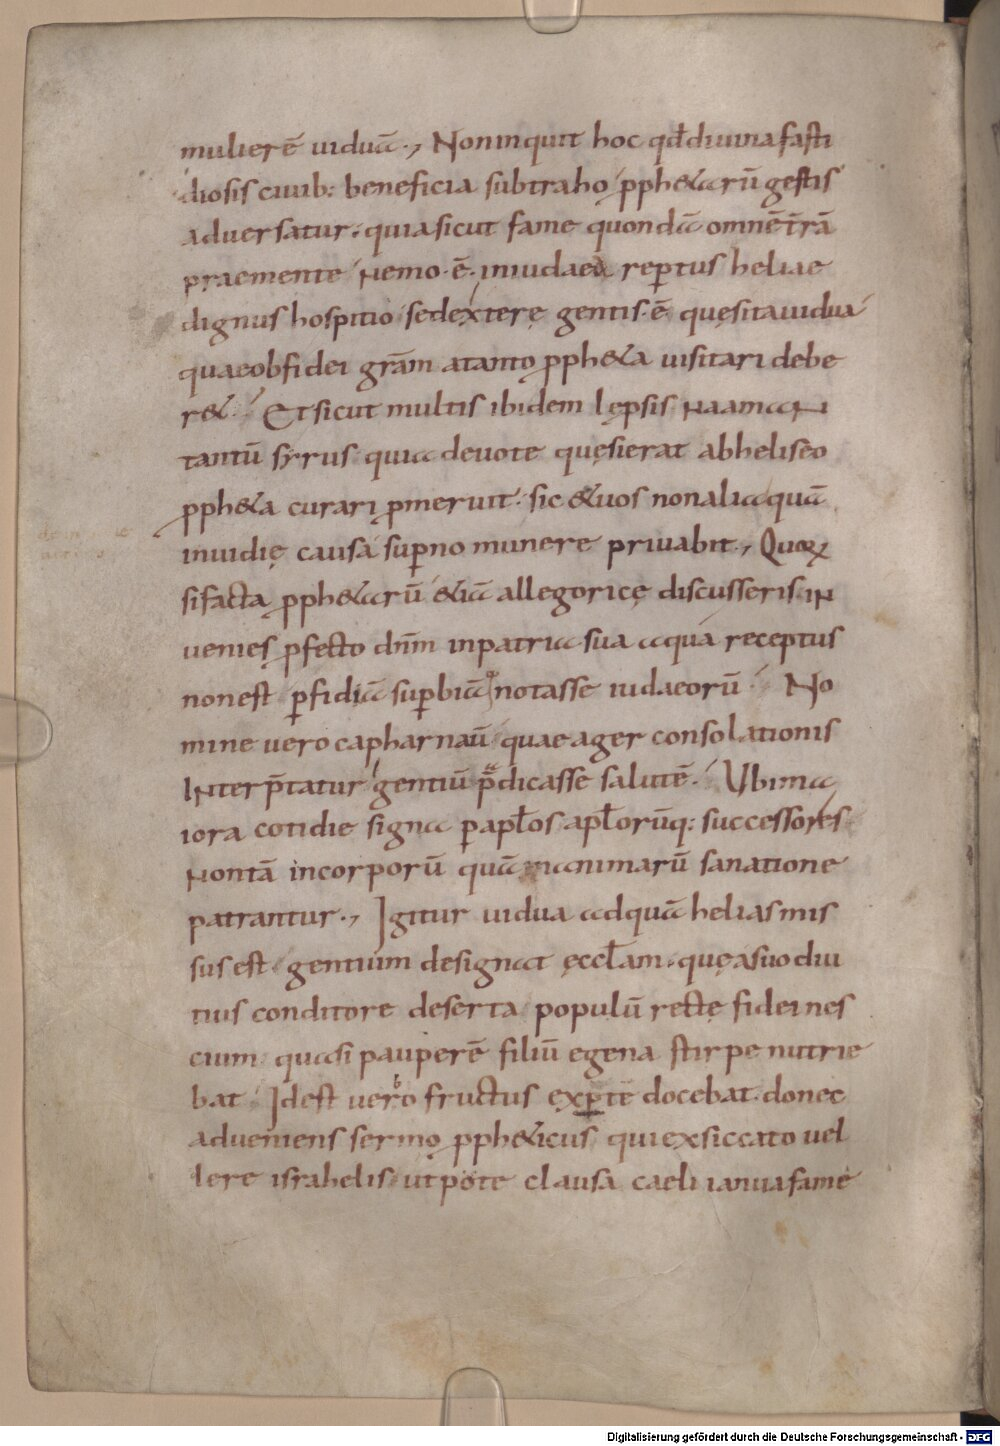 mulierē uiduā., Non inquit hoc qđ diuina fasti
diosis ciuib: beneficia subtraho ꝓphetarū gestis
aduersatur. quia sicut fame quondā omnē t̄rā
praemente nemo .ē. in iudaea rep̄tus heliae
dignus hospitio sed exterę gentis .ē quęsita uidua
quae ob fidei gr̄am a tanto ꝓph&a uisitari debe
r&. Et sicut multis ibidem lępsis naaman
tantū syrus quia deuote quęsierat ab heliseo
ꝓph&a curari ꝓmeruit. sic & uos non alia quā
inuidię causa sup̄no munere priuabit., Quorꝝ
si facta ꝓph&arū &iā allegoricę discusseris in
uenies ꝓfecto dn̄m in patria sua a qua receptus
non est ꝑfidiā suꝑbiāq notasse iudaeorū. No
mine uero capharnaū quae ager consolationis
interp̄tatur gentiū p̄dicasse salutē. Vbi ma
iora cotidie signa ꝑ apłos apłorūq: successores
non tā in corporū quā in animarū sanatione
patrantur., Igitur uidua ad quā helias mis
sus est gentium designat ęccłam. quę a suo diu
tius conditore deserta populū rectę fidei nes
cium quasi pauperē filiū egena stirpe nutrie
bat. Id est uero fructus exꝑte docebat. donec
adueniens sermo ꝓph&icus qui exsiccato uel
lere israhelis utpote clausa caeli ianua fame
Digitalisierung gefördert durch die Deutsche Forschungsgemeinschaft - DFG